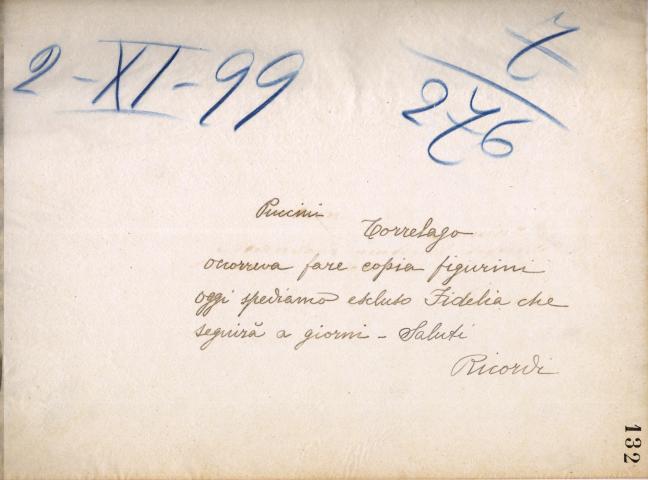 2-XI-99
7
276
Puccini
Torrelago
occorreva fare copia figurini
oggi spediamo escluso Fidelia che
seguirà a giorni - Saluti
Ricordi
132